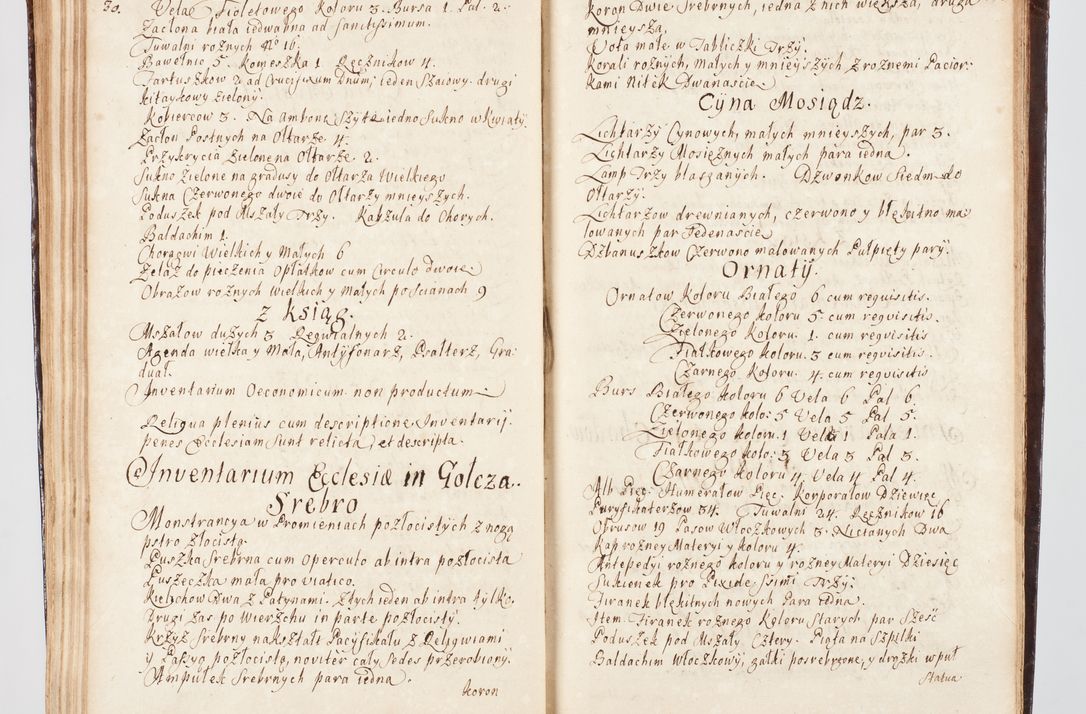 30. Vela Fioletowego Koloru 3. Bursa 1. Pal. 2.
Zaclona biała iedwabna ad Sanctissimum.
Tuwalni rożnych No 16.
Bawełnic 5. Komeszka 1. Ręcznikow 4.
Fartuszkow 2 ad Crucifixum Dnum, ieden Szarowy. drugi
kitaykowy Zielony.
Kobiercow 3. Na Ambona Szyte iedno Sukno w Kwiaty.
Zacłon Postnych na Ołtarze 4.
Przykrycia Zielone na Ołtarze 2.
Sukno Zielone na gradusy do Ołtarza Wielkiego
Sukna Czerwonego dwoie do Ołtarzy mnieyszych.
Poduszek pod Mszały Trzy. Kapzula do Chorych.
Baldachim 1.
Chorągwi Wielkich y Małych 6
Zelaz do pieczenia Opłatkow cum Circulo dwoie.
Obrazow rożnych Wielkich y Małych po Scianach 9
z Ksiąg.
Mszałow dużych 3 Requialnych 2.
Agenda wielka y Mała, Antyfonarz, Psałterz, Gra-
duał.
Inventarium Oeconomicum non productum
Reliqua plenius cum descriptione Inventarij
penes Ecclesiam Sunt relicta, et descripta.
Inventarium Ecclesiæ in Golcza.
Srebro
Monstrancya w Promieniach pozłocistych z nogą
pstro złocistą
Puszka Srebrna cum Operculo ab intra pozłocista
Puszeczka mała pro viatico.
Kielichow Dwa z Patynami. Złtych ieden ab intra tylko
Drugi zas po Wierzchu in parte pozłocisty.
Krzyż Srebrny na kształt Pacyfikału z Reliqwiami
y Passyą pozłocistą, noviter cały Sedes przerobiony.
Ampułek Srebrnych para iedna.
Koron
Koron Dwie Srebrnych, iedna z nich większa, druga
mnieysza,
Wota małe w Tabliczki Trzy.
Korali rożnych, małych y mnieyszych z rożnemi Pacior-
kami Nitek Dwanascie
Cyna Mosiądz.
Lichtarzy Cynowych, małych mnieyszych, par 3.
Lichtarzy Mosiężnych małych para iedna.
Lamp Trzy blaszanych. Dzwonkow Siedm do
Ołtarzy.
Lichtarzow drewnianych, czerwono y błękitno ma-
lowanych par Jedenascie
Dzbanuszkow Czerwono malowanych Pułpięty pary.
Ornaty.
Ornatow Koloru Białego 6 cum requisitis.
Czerwonego koloru 5. cum reqvisitis.
Zielonego Koloru. 1. cum reqvisitis
Fiałkowego koloru. 3 cum reqvisitis.
Czarnego Koloru. 4. cum reqvisitis
Burs Białego koloru 6 Vela 6 Pal 6.
Czerwonego kolo: 5 Vela 5 Pal 5.
Zielonego koloru. 1 Vela 1 Pala 1.
Fiałkowego kolo: 3 Vela 3 Pal 3.
Czarnego Koloru 4. Vela 4 Pal 4.
Alb Pięć. Humerałow Pięć. Korporałow Dziewięć
Puryfikaterzow 34. Tuwalni 24. Ręcznikow 16
Obrusow 19 Pasow Włoczkowych 3. Nicianych Dwa
Kap rożney Materyi y koloru 4.
Antepedyi rożnego koloru y rożney Materyi Dziesięć
Sukienek pro Pixide SSimi Trzy.
Firanek błękitnych nowych Para iedna.
Item Firanek rożnego Koloru Starych par Sześć
Poduszek pod Mszały Cztery. Piąta na Szpilki
Baldachim Włoczkowy, gałki posrebrzone, y drążki w puł
Statua